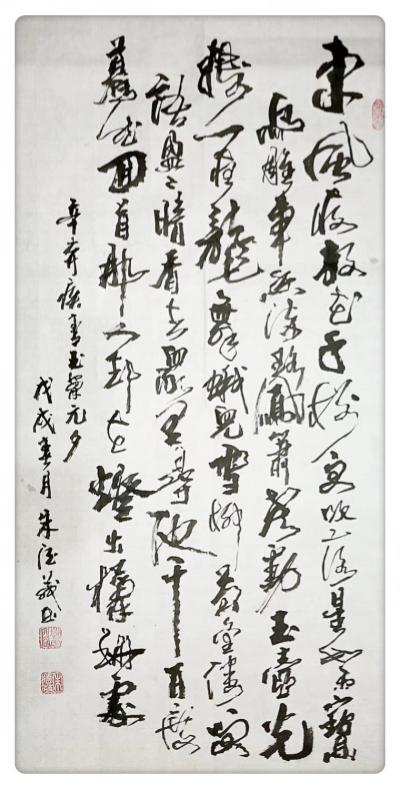 東風夜放花千樹更吹落星如雨寶
馬雕車香滿路鳳簫聲動玉壺光
轉一夜龍舞蛾兒雪柳黃金縷笑
語盈〻暗香去眾里尋他千百度
驀然回首那人却在燈火欄珊處
辛弃疾青玉案元夕
戊戌春月朱